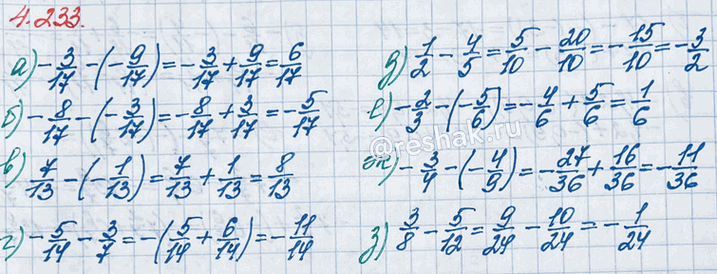 4.233.
а) -3/17 - (-9/17) = -3/17 + 9/17 = 6/17
б) -8/17 - (-3/17) = -8/17 + 3/17 = -5/17
в) 7/13 - (-1/13) = 7/13 + 1/13 = 8/13
г) -5/14 - 3/7 = -(5/14 + 6/14) = -11/14
д) 1/2 - 4/5 = 5/10 - 20/10 = -15/10 = -3/2
е) -2/3 - (-5/6) = -4/6 + 5/6 = 1/6
ж) -3/4 - (-4/9) = -27/36 + 16/36 = -11/36
з) 3/8 - 5/12 = 9/24 - 10/24 = -1/24
@reshak.ru